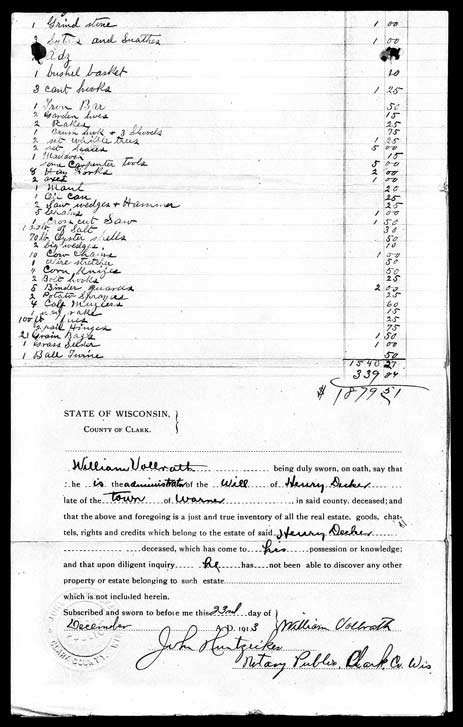 1 Grind stone 1 00
3 Sytes and Snathes 1 00
Adz
1 bushel basket 10
3 cant hooks 1 25
1 Iron Bar 50
2 Garden hoes 15
2 Rakes 25
1 Brush hook & 3 Shovels 75
2 set whipple trees 1 25
2 set Scales 5 00
1 15
some Carpenter tools 5 00
8 Hay Forks 2 00
2 axes 1 00
1 Maul 20
1 Oil Can 25
2 Saw wedges & Hammer 25
5 1 00
1 Cross cut Saw 1 50
of Salt 30
70 lb Oyster shells 50
2 big wedges 10
10 Cow Chains 1 00
1 Wire stretcher 50
4 Corn Knives 50
2 Bolt hooks 25
5 Binder guards 2 00
2 Potato Sprayers 25
4 Calf Muzzles 60
1 rake 15
100 lb 25
2 Hinges 75
21 Grain Bags 1 50
1 Grass Seeder 1 00
1 Ball Twine 50
1540 27
339 04
$ 1879 51
STATE OF WISCONSIN,
COUNTY OF CLARK.
William Vollrath being duly sworn, on oath, say that
he is the administrator of the Will of Henry Decker
late of the Town of Warner in said county, deceased; and
that the above and foregoing is a just and true inventory of all the real estate, goods, chat-
tels, rights and credits which belong to the estate of said Henry Decker
deceased, which has come to his possession or knowledge;
and that upon diligent inquiry he has not been able to discover any other
property or estate belonging to such estate
which is not included herein.
Subscribed and sworn to before me this 22nd day of
December A.D. 1913 William Vollrath
John Huntzicker
Notary Public, Clark Co. Wis